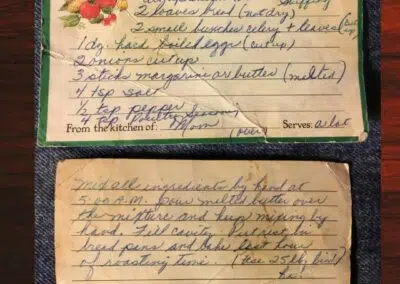 Stuffing
2 loaves bread (not dry)
2 small bunches celery + leaves (cut up)
1 dz. hard boiled eggs (cut up)
2 onions cut up
3 sticks margarine or butter (melted)
4 tsp salt
1/2 tsp pepper
4 tsp Poultry Season
From the kitchen of: Mom Serves: a lot
(over)
Mix all ingredients by hand at
5:00 A.M. Pour melted butter over
the mixture and keep mixing by
hand. Fill cavity. Put rest in
bread pans and bake last hour
of roasting time. (Use 25 lb. bird)